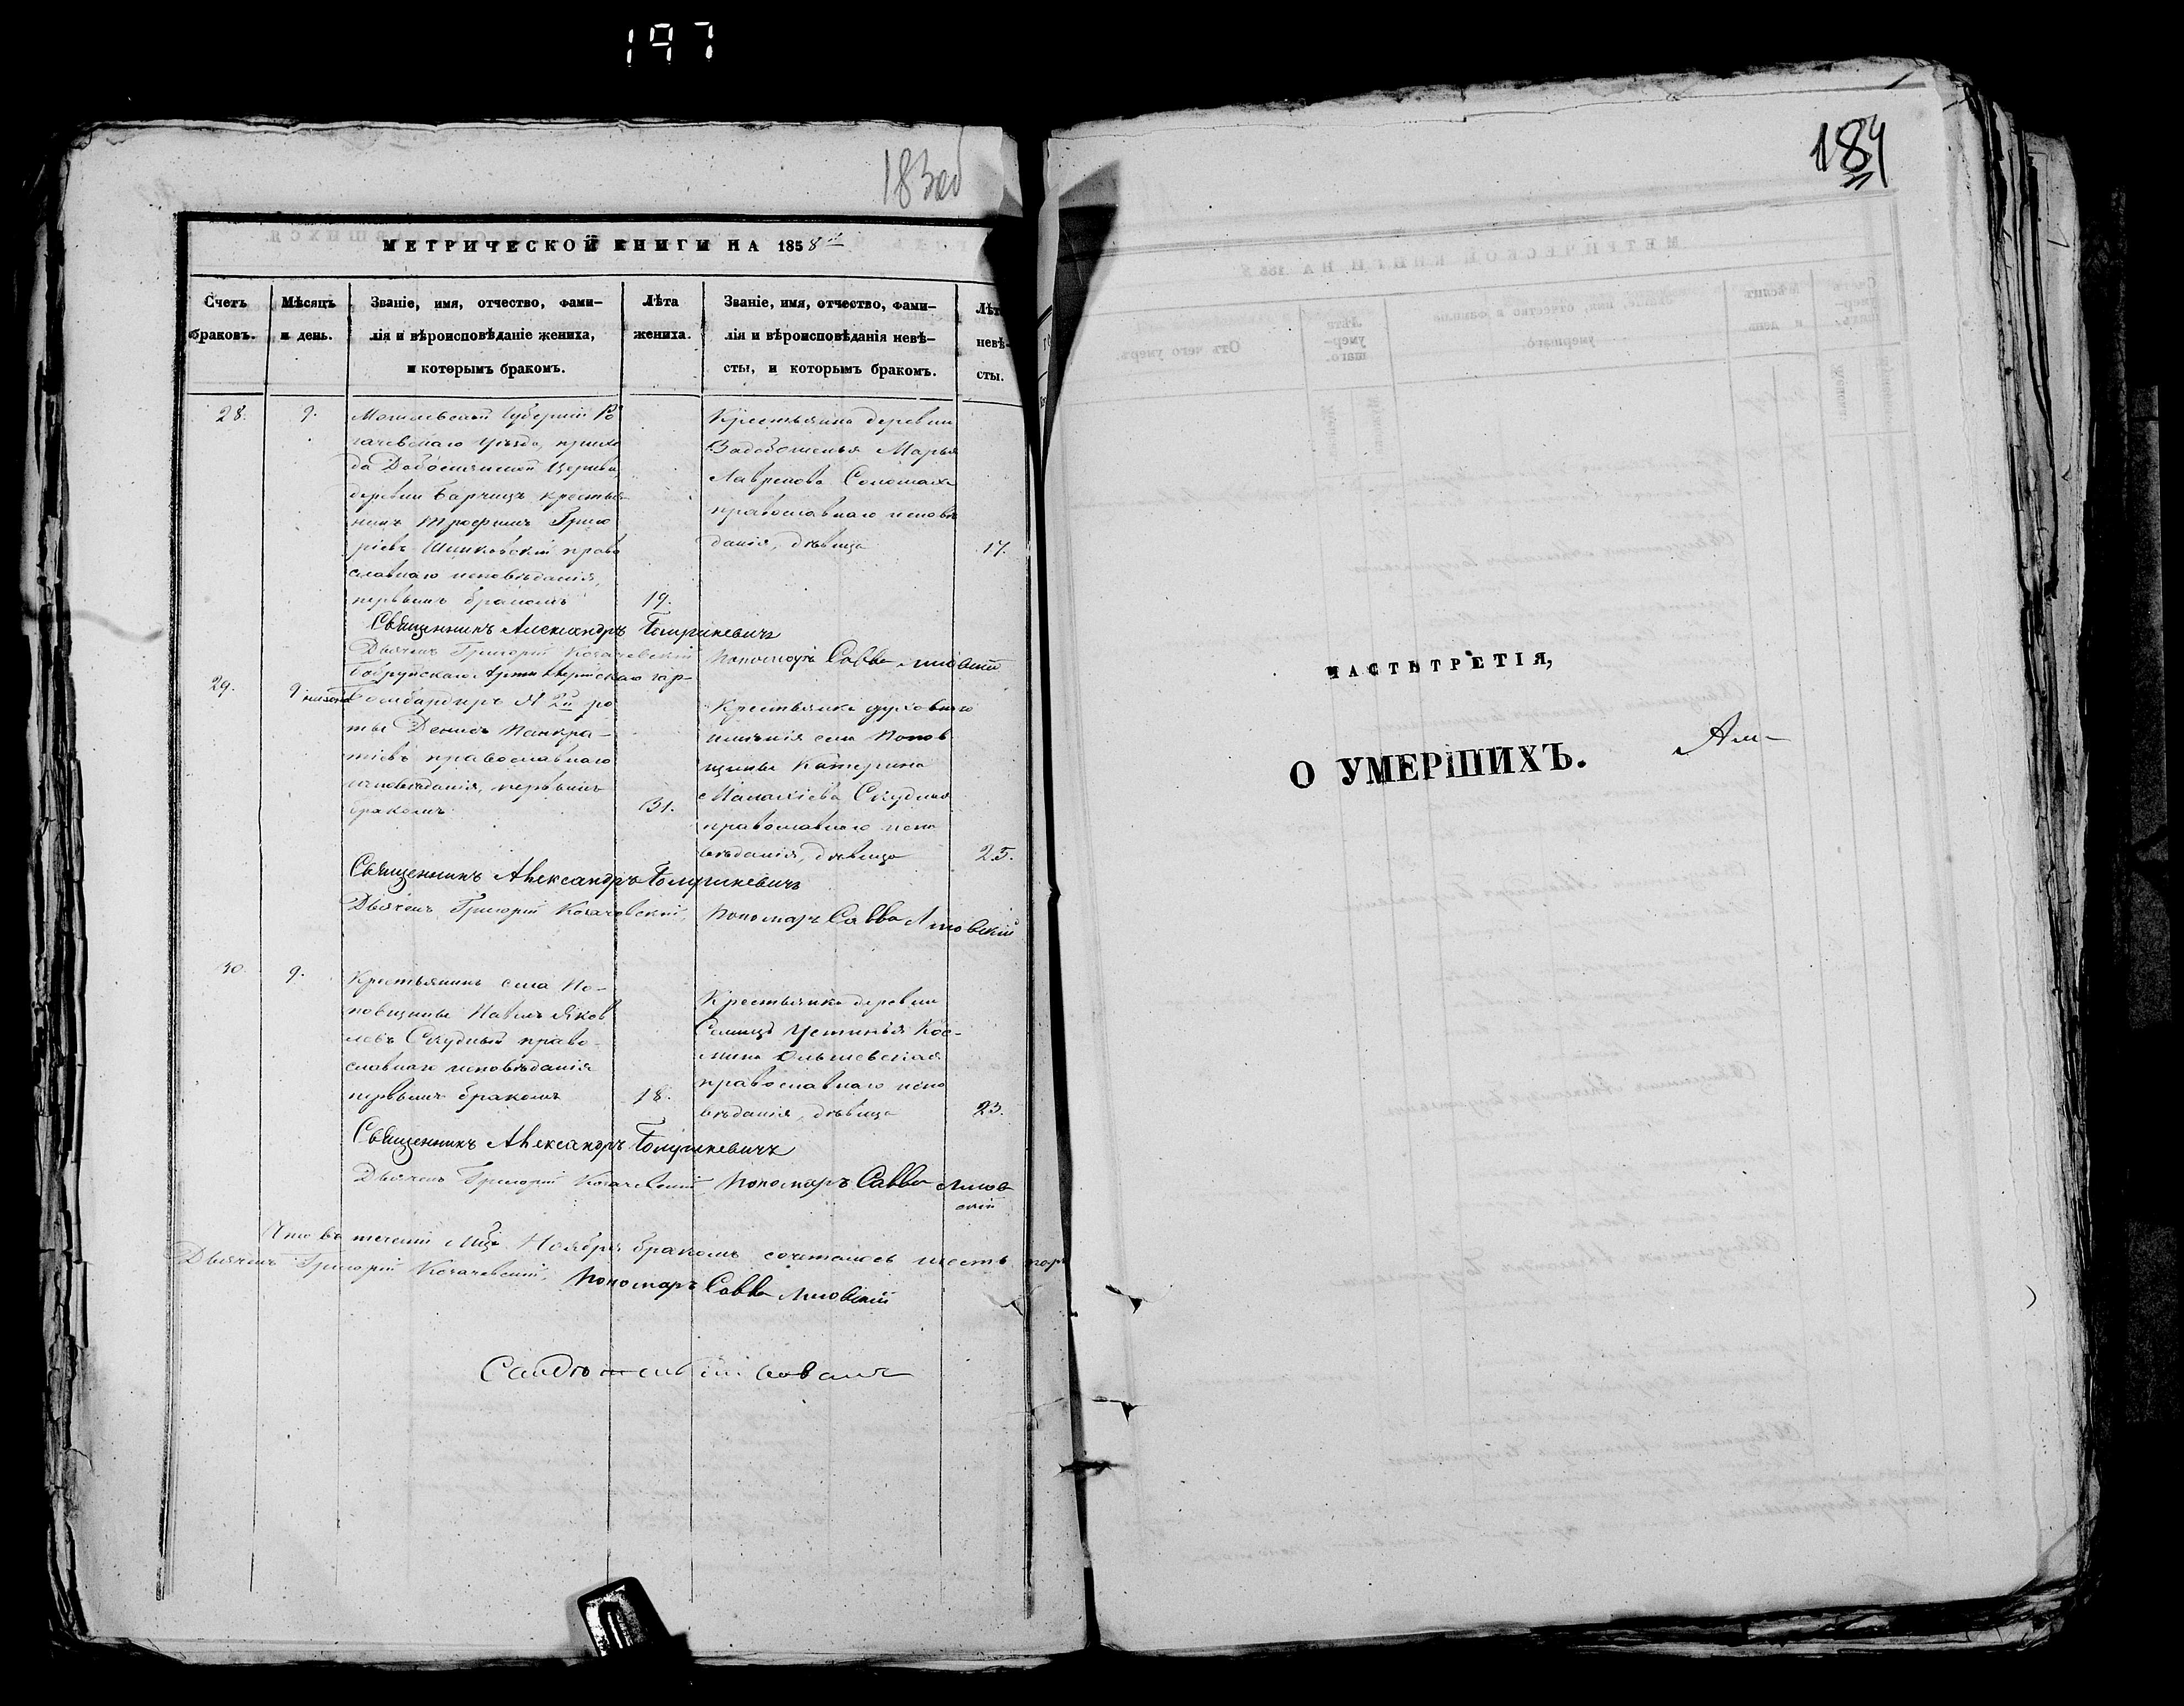 197
183об
МЕТРИЧЕСКОЙ КНИГИ НА 1858й
Счетъ браковъ.
Мѣсяцъ и день.
Званіе, имя, отчество, фами-
лія и вѣроисповѣданіе жениха,
и которымъ бракомъ.
Лѣта жениха.
Званіе, имя, отчество, фами-
лія и вѣроисповѣданія невѣ-
сты, и которымъ бракомъ.
Лѣта невѣ-
сты.
28.
9.
Могилевской Губерніи Ро
гачевскаго уѣзда, прихо
да Добосиянской Церкви,
деревни Барчицъ крестья
нинъ Трофимъ Григо
ріевъ Шинковскій право
славнаго исповѣданія,
первымъ бракомъ
19.
Крестьянка деревни
Марья
Лавренова
православнаго исповѣ
данія, дѣвица
17.
Священникъ Александръ
Дьячекъ Григорій Пономарь Савва
29.
9
Бобруйскаго Артиллерійскаго гар-
Бомбардиръ № 2й ро
ты Денисъ Панкра-
тіевъ православнаго
исповѣданія, первымъ
бракомъ
31.
Крестьянка духовнаго
имѣнія села Попов
щины Катерина
Малахіева Скудная
православнаго испо
вѣданія, дѣвица
25.
Священникъ Александръ
Дьячекъ Григорій Пономарь Савва
30.
9.
Крестьянинъ села По-
повщины Павелъ Яков
левъ Скудный право-
славнаго исповѣданія
первымъ бракомъ
18.
Крестьянка деревни
Устинья Кос-
мина Ольшевская
православнаго испо
вѣданія, дѣвица
23.
Священникъ Александръ
Дьячекъ Григорій Пономарь Савва
Что въ теченіи Мца Ноября бракомъ сочталось шесть паръ
Дьячекъ Григорій Пономарь Савва
184
ЧАСТЬ ТРЕТІЯ,
О УМЕРШИХЪ.